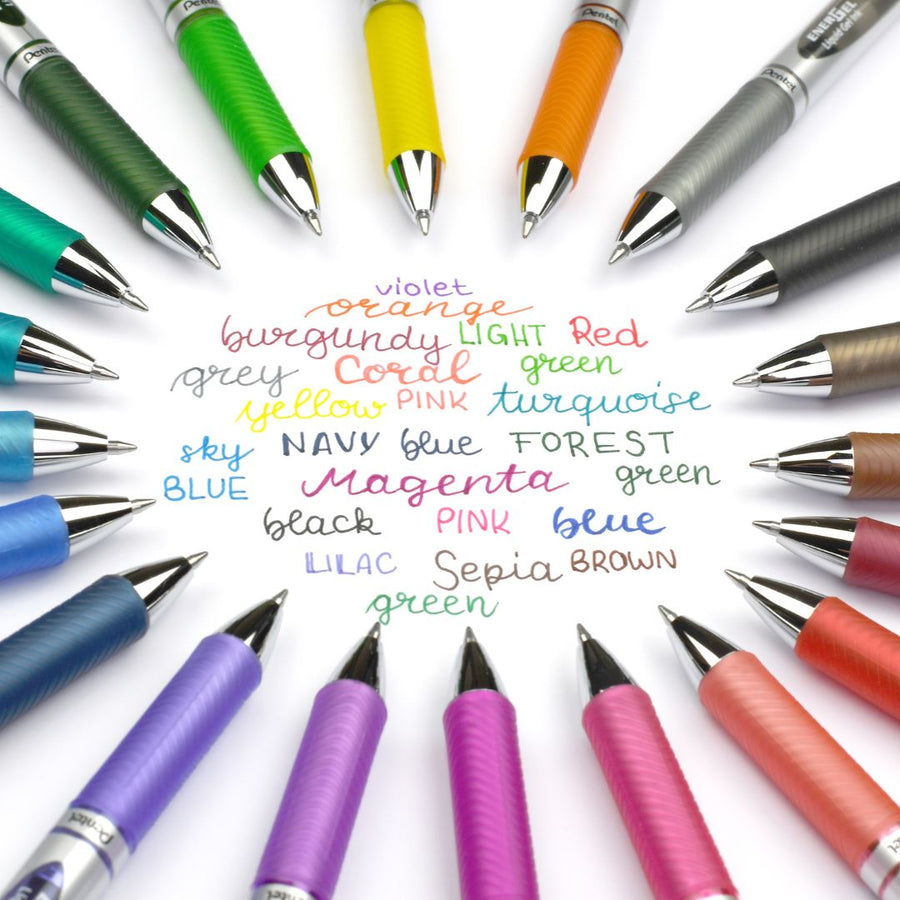 Pentel
Pentel
Pentel
ENERGEL
Liquid Gel Ink
Pentel
violet
orange
burgundy LIGHT Red
grey Coral green
yellow PINK turquoise
sky NAVY blue FOREST
BLUE Magenta green
black PINK blue
LILAC Sepia BROWN
green
Pentel
Pentel